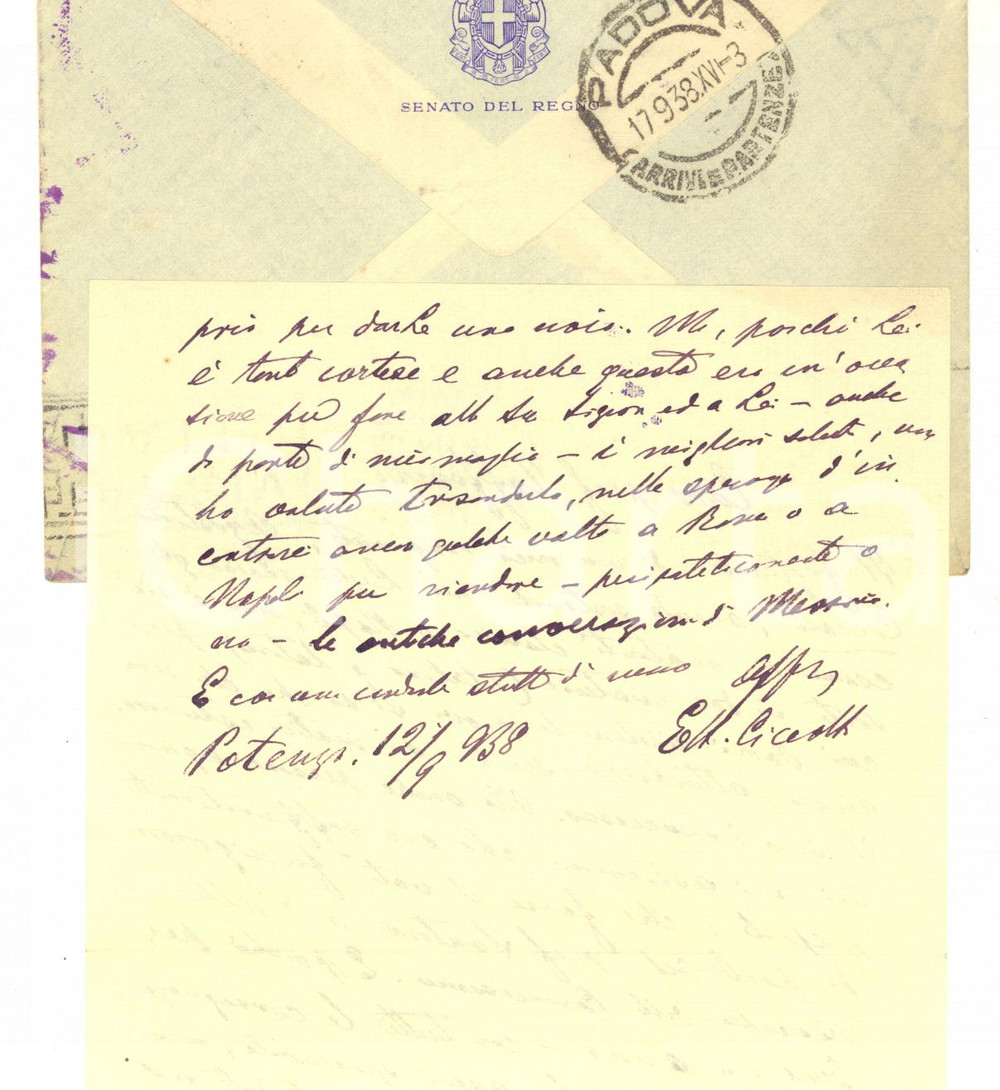 SENATO DEL REGNO
PADOVA
17 9 38.XVI-3
ARRIVI E PARTENZE
prio per darLe una noia. Ma, poichè Lei
è tanto cortese e anche questa era un'occa
sione per fare alla Sua Signora ed a Lei – anche
di parte di mia moglie – i migliori saluti, non
ho voluto trascurarla, nella speranza d'in
contrarci ancora qualche volta a Roma o a
Napoli per riandare – peripateticamente o
no – le antiche conversazioni di Messina.
E con una cordiale stretta di mano
Aff.
Potenza. 12/9 938
Ett. Ciccotti